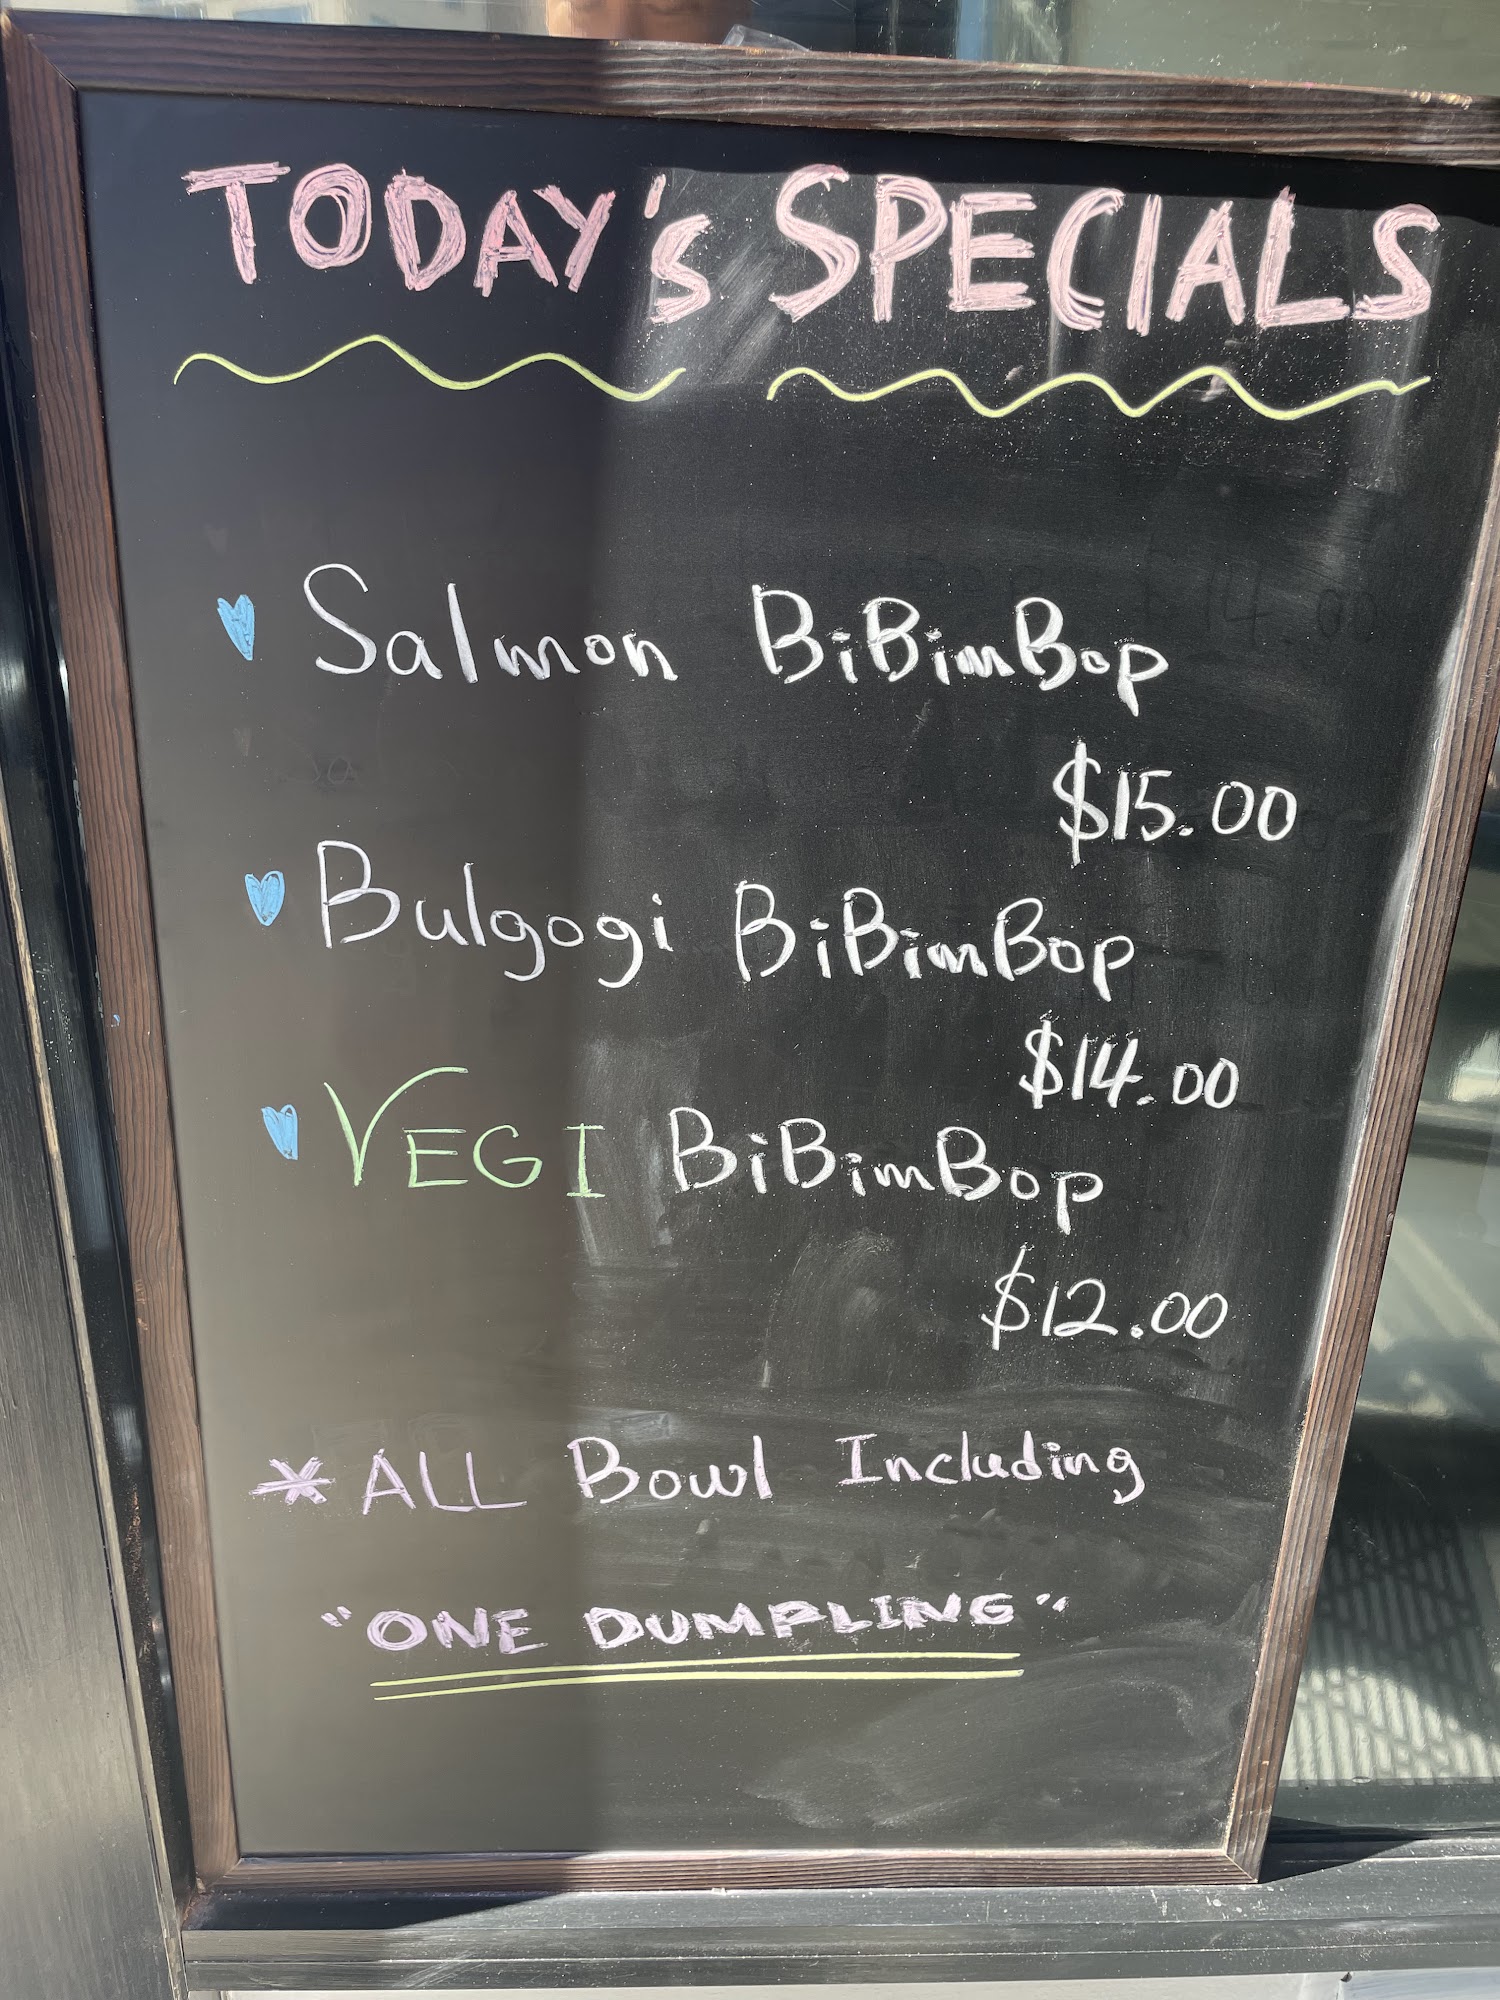 TODAY's SPECIALS
Salmon BiBimBop
$15.00
Bulgogi BiBimBop
$14.00
VEGI BiBimBop
$12.00
*ALL Bowl Including
"ONE DUMPLING"